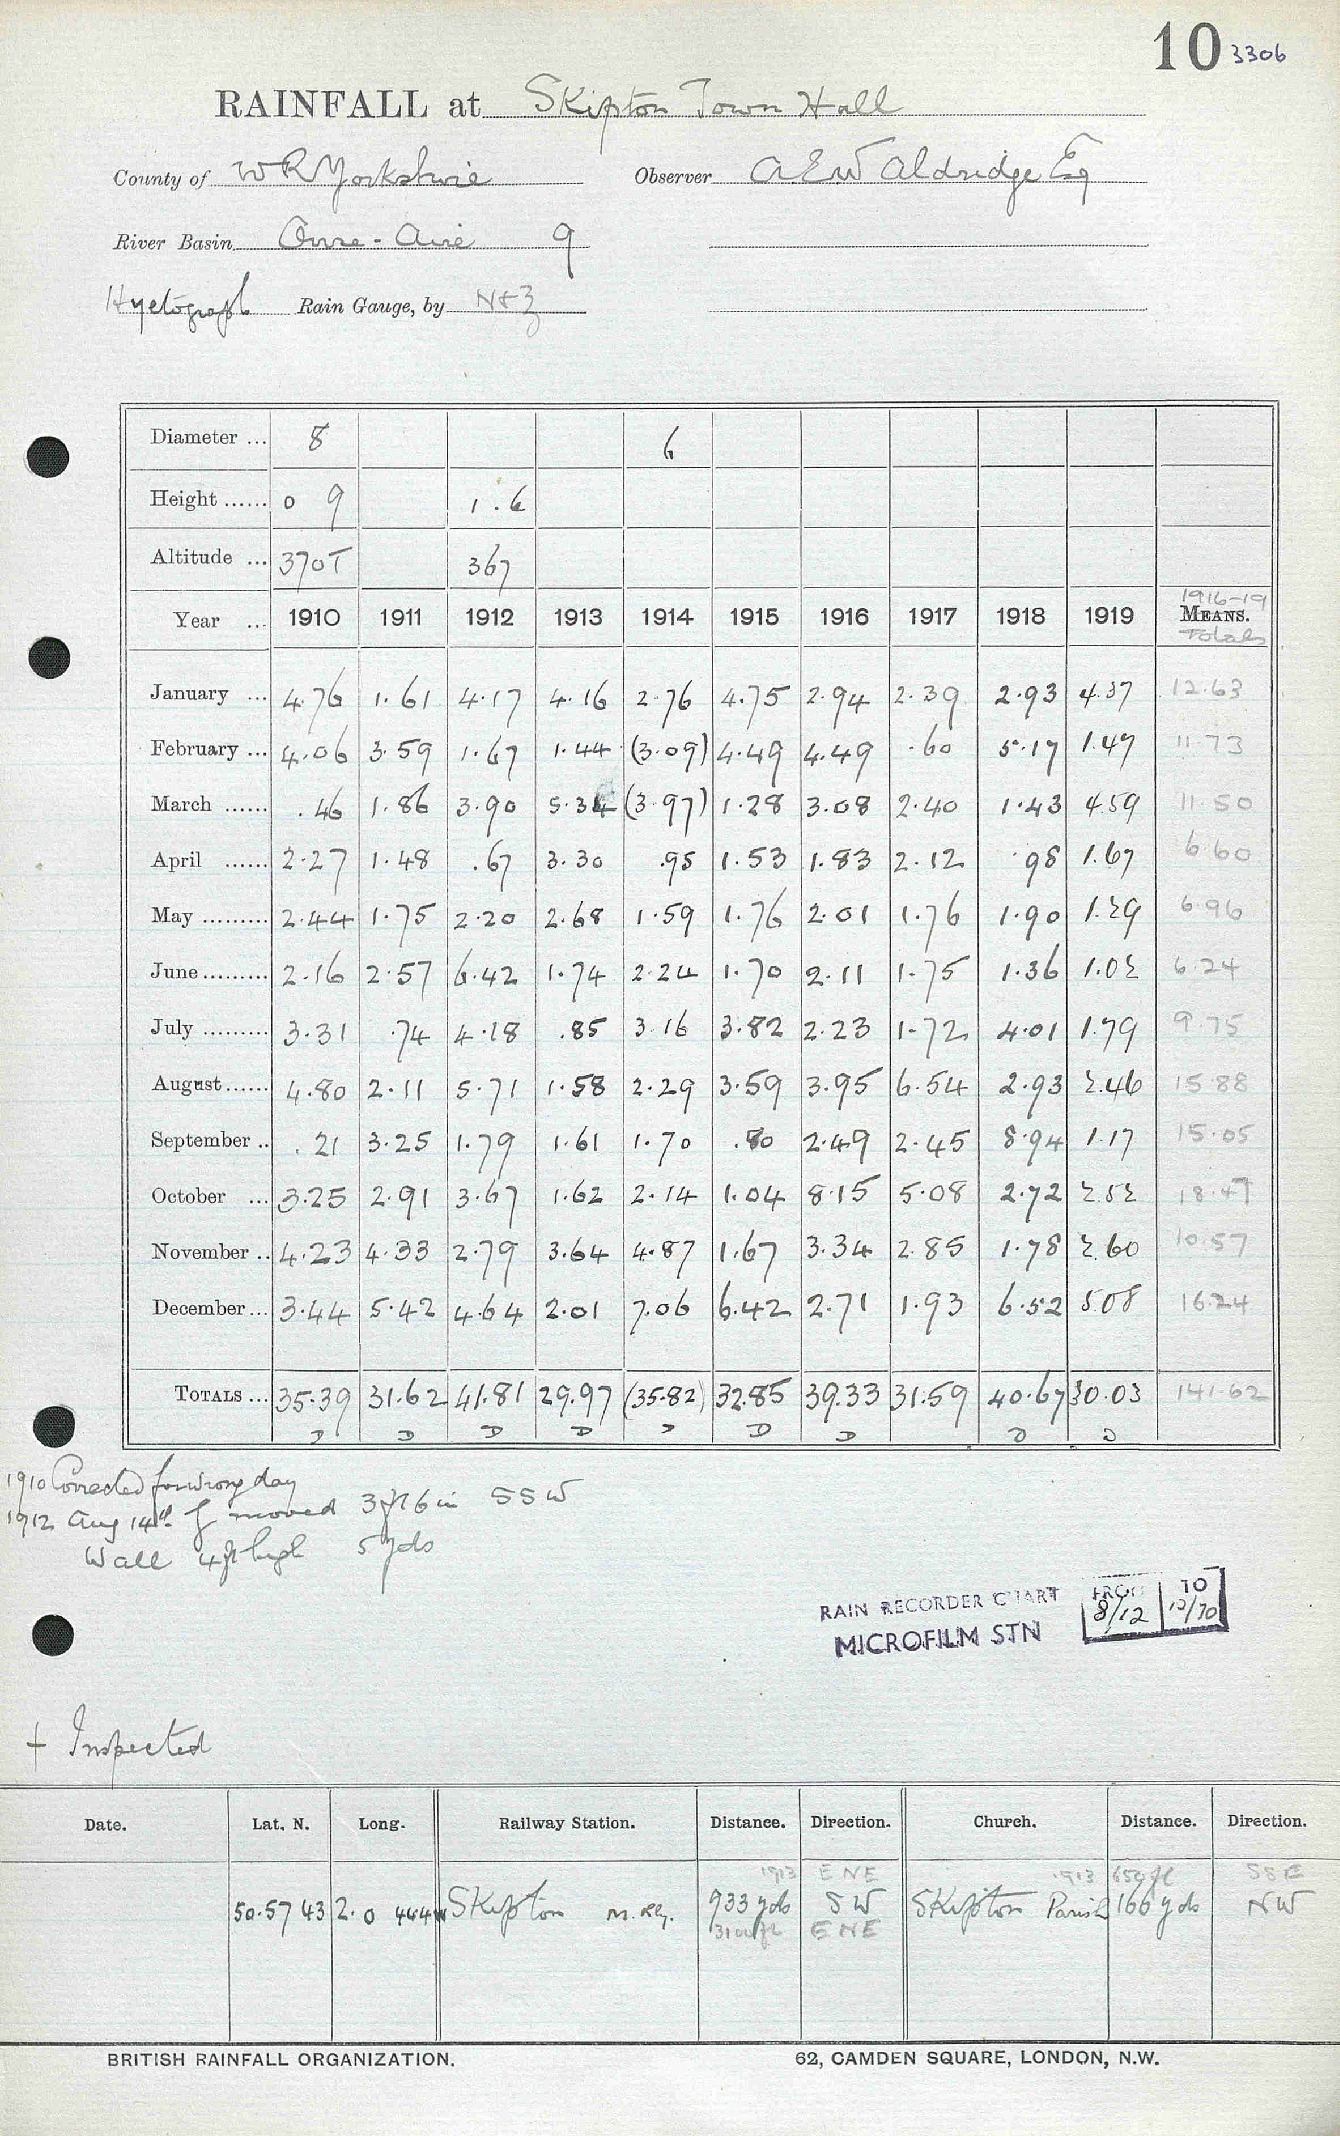 10 3306
RAINFALL at Skipton Town Hall
County of W R Yorkshire Observer A.E.W Aldridge Esq
River Basin Ouse - Aire 9
Hyetograph Rain Gauge, by N+Z
Diameter ... 8 6
Height ...... 0 9 1.6
Altitude ... 370T 367
Year ... 1910 1911 1912 1913 1914 1915 1916 1917 1918 1919 1916-19 MEANS. Totals
January ... 4.76 1.61 4.17 4.16 2.76 4.75 2.94 2.39 2.93 4.37 12.63
February ... 4.06 3.59 1.67 1.44 (3.09) 4.49 4.49 .60 5.17 1.47 11.73
March ...... .46 1.86 3.90 5.34 (3.97) 1.28 3.08 2.40 1.43 4.59 11.50
April ...... 2.27 1.48 .67 3.30 .95 1.53 1.83 2.12 .98 1.67 6.60
May ......... 2.44 1.75 2.20 2.68 1.59 1.76 2.01 1.76 1.90 1.29 6.96
June ......... 2.16 2.57 6.42 1.74 2.24 1.70 2.11 1.75 1.36 1.02 6.24
July ......... 3.31 .74 4.18 .85 3.16 3.82 2.23 1.72 4.01 1.79 9.75
August ...... 4.80 2.11 5.71 1.58 2.29 3.59 3.95 6.54 2.93 2.46 15.88
September .. .21 3.25 1.79 1.61 1.70 .80 2.49 2.45 8.94 1.17 15.05
October ... 3.25 2.91 3.67 1.62 2.14 1.04 8.15 5.08 2.72 2.52 18.47
November .. 4.23 4.33 2.79 3.64 4.87 1.67 3.34 2.85 1.78 2.60 10.57
December ... 3.44 5.42 4.64 2.01 7.06 6.42 2.71 1.93 6.52 5.08 16.24
TOTALS ... 35.39 31.62 41.81 29.97 (35.82) 32.85 39.33 31.59 40.67 30.03 141.62
D D D D D D D D D
1910 Corrected for wrong day
1912 Aug 14th G moved 3ft 6in SSW
Wall 4ft high 5yds
RAIN RECORDER CHART FROM TO
MICROFILM STN 8/12 12/70
+ Inspected
Date. Lat. N. Long. Railway Station. Distance. Direction. Church. Distance. Direction.
1913 ENE 1913 650ft SSE
50.57 43 2.0 444W Skipton M. Rly. 933 yds SW Skipton Parish 166 yds NW
ENE
BRITISH RAINFALL ORGANIZATION. 62, CAMDEN SQUARE, LONDON, N.W.